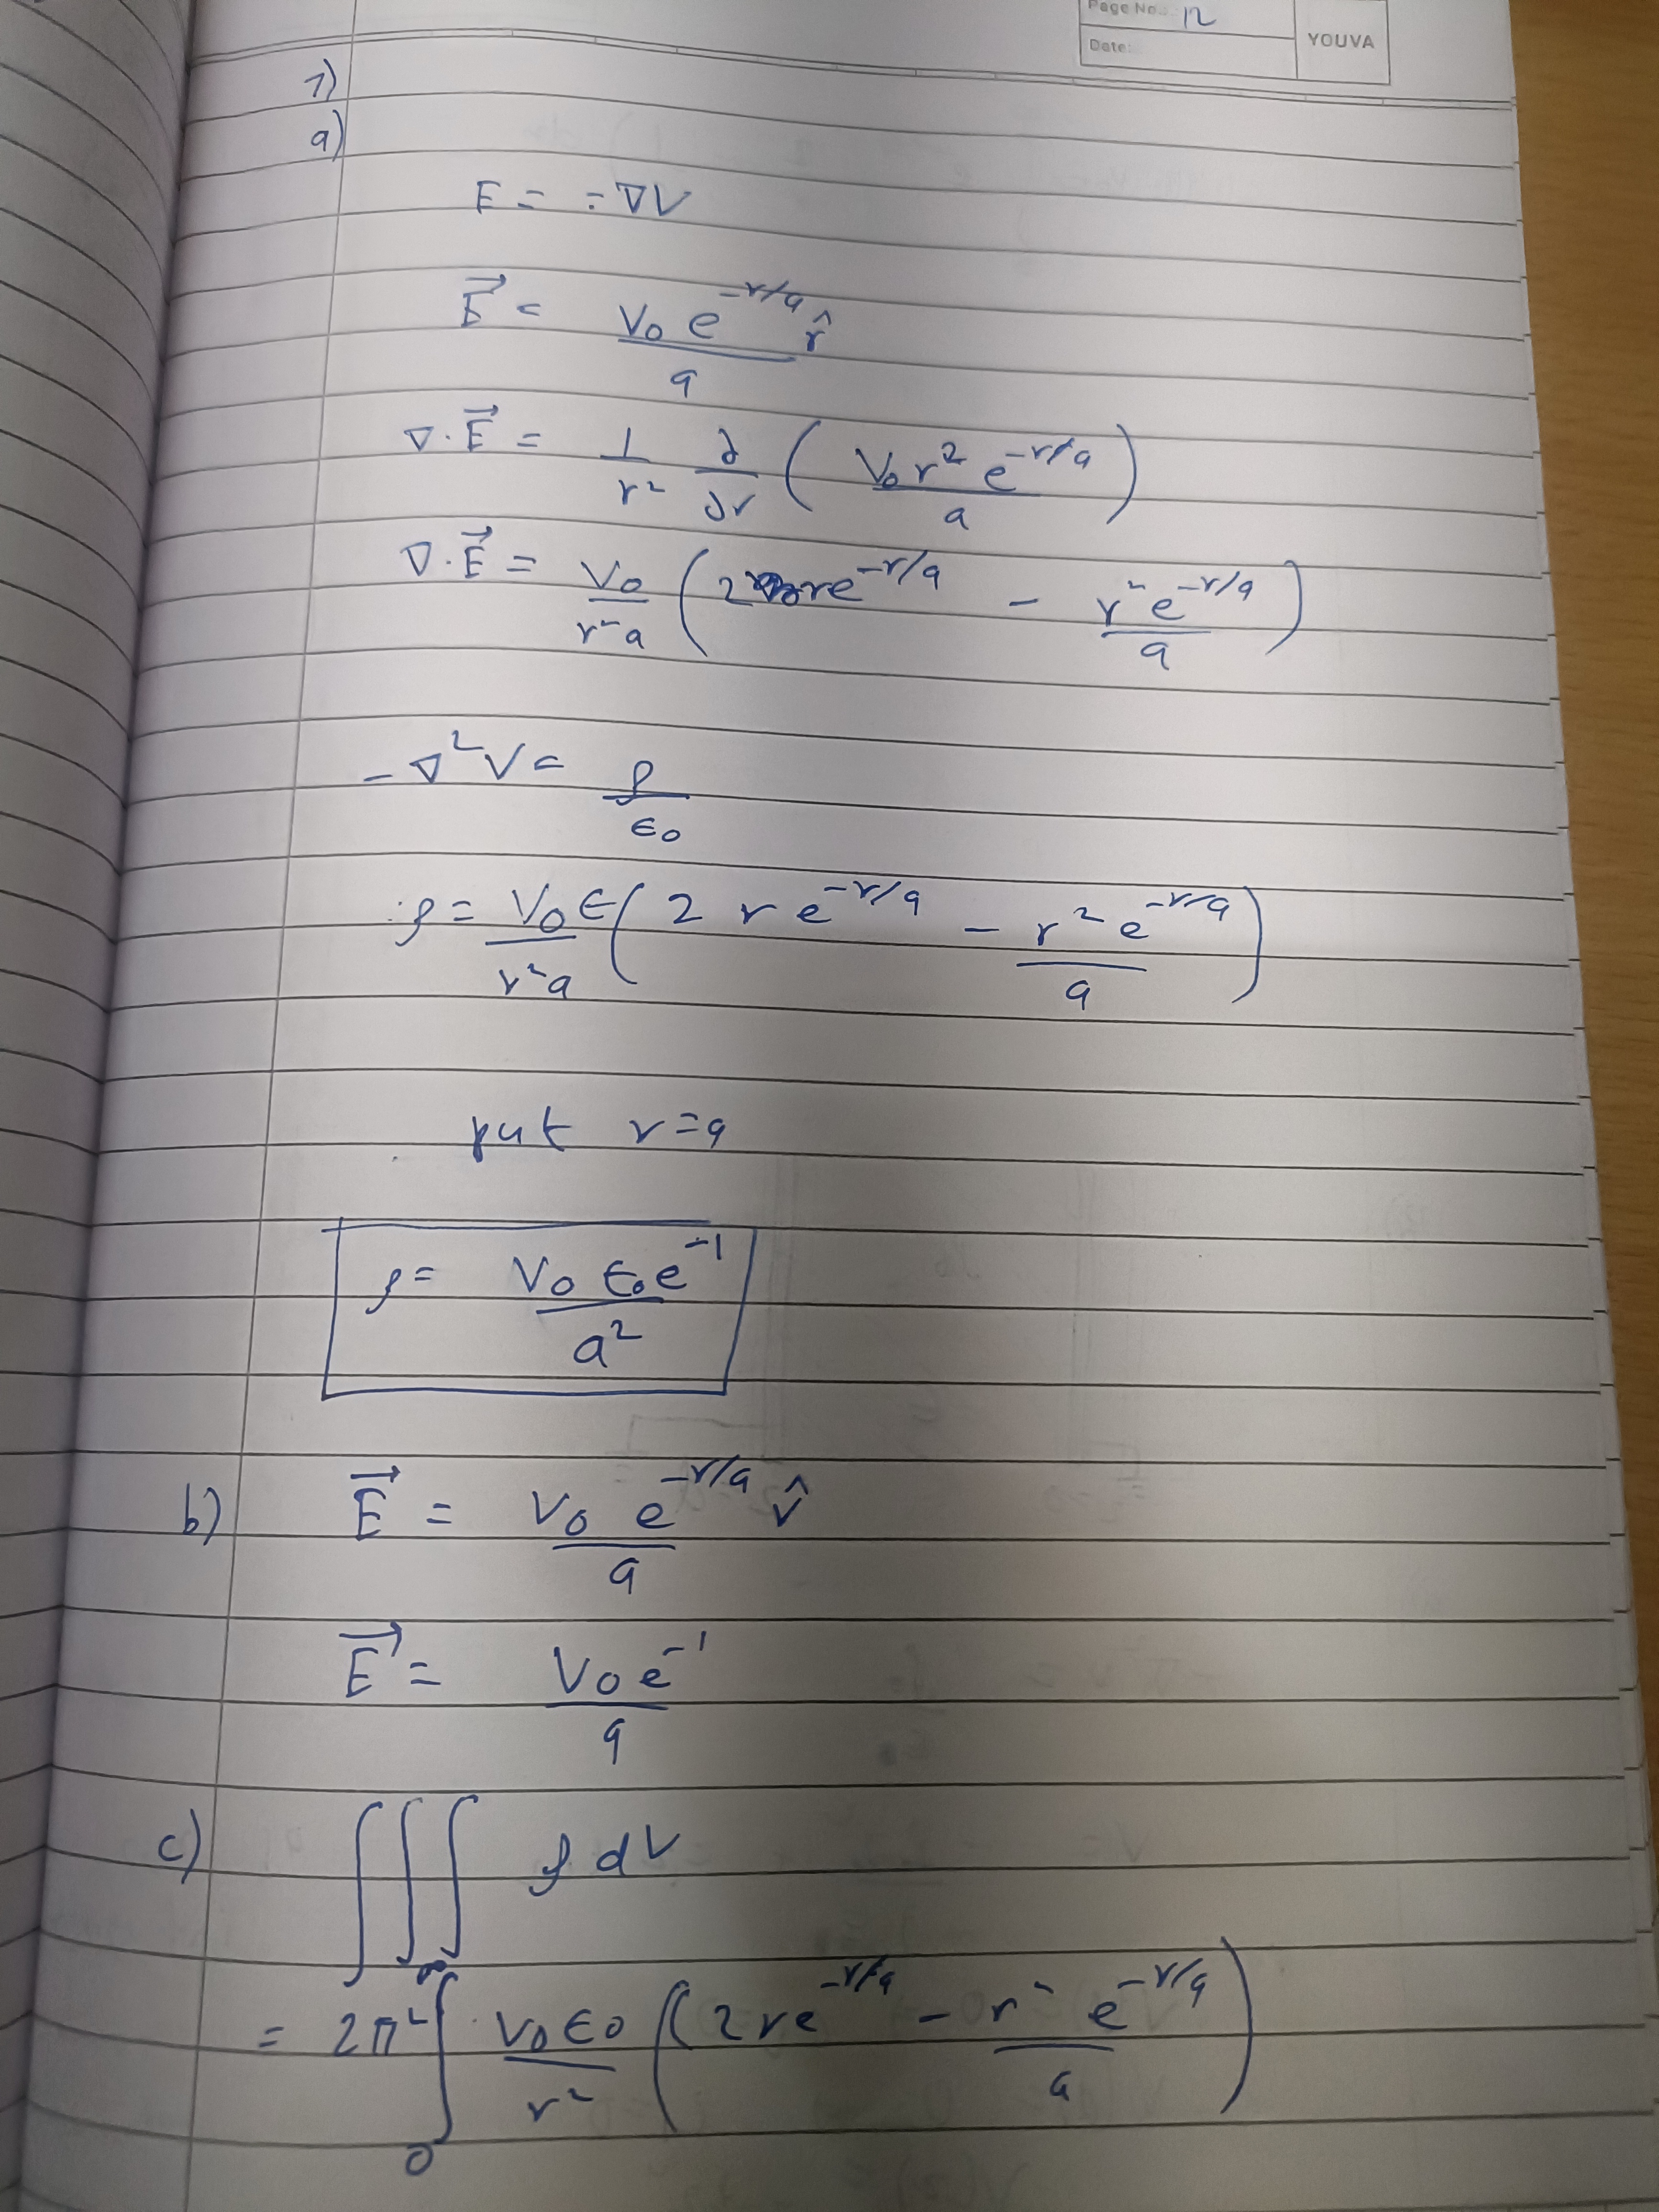 Page No.: 12
Date:
YOUVA
1)
a)
E = -∇V
E⃗ = V₀ e^(-r/a) r̂ / a
∇·E⃗ = 1/r² ∂/∂r ( V₀ r² e^(-r/a) / a )
∇·E⃗ = V₀/(r²a) ( 2re^(-r/a) - r²e^(-r/a)/a )
-∇²V = ρ/ε₀
ρ = V₀ε/(r²a) ( 2re^(-r/a) - r²e^(-r/a)/a )
put r=a
ρ = V₀ε₀e⁻¹ / a²
b) E⃗ = V₀ e^(-r/a) r̂ / a
E⃗ = V₀e⁻¹ / a
c) ∭ ρ dV
= 2π² ∫₀^∞ V₀ε₀/r² ( 2re^(-r/a) - r²e^(-r/a)/a )